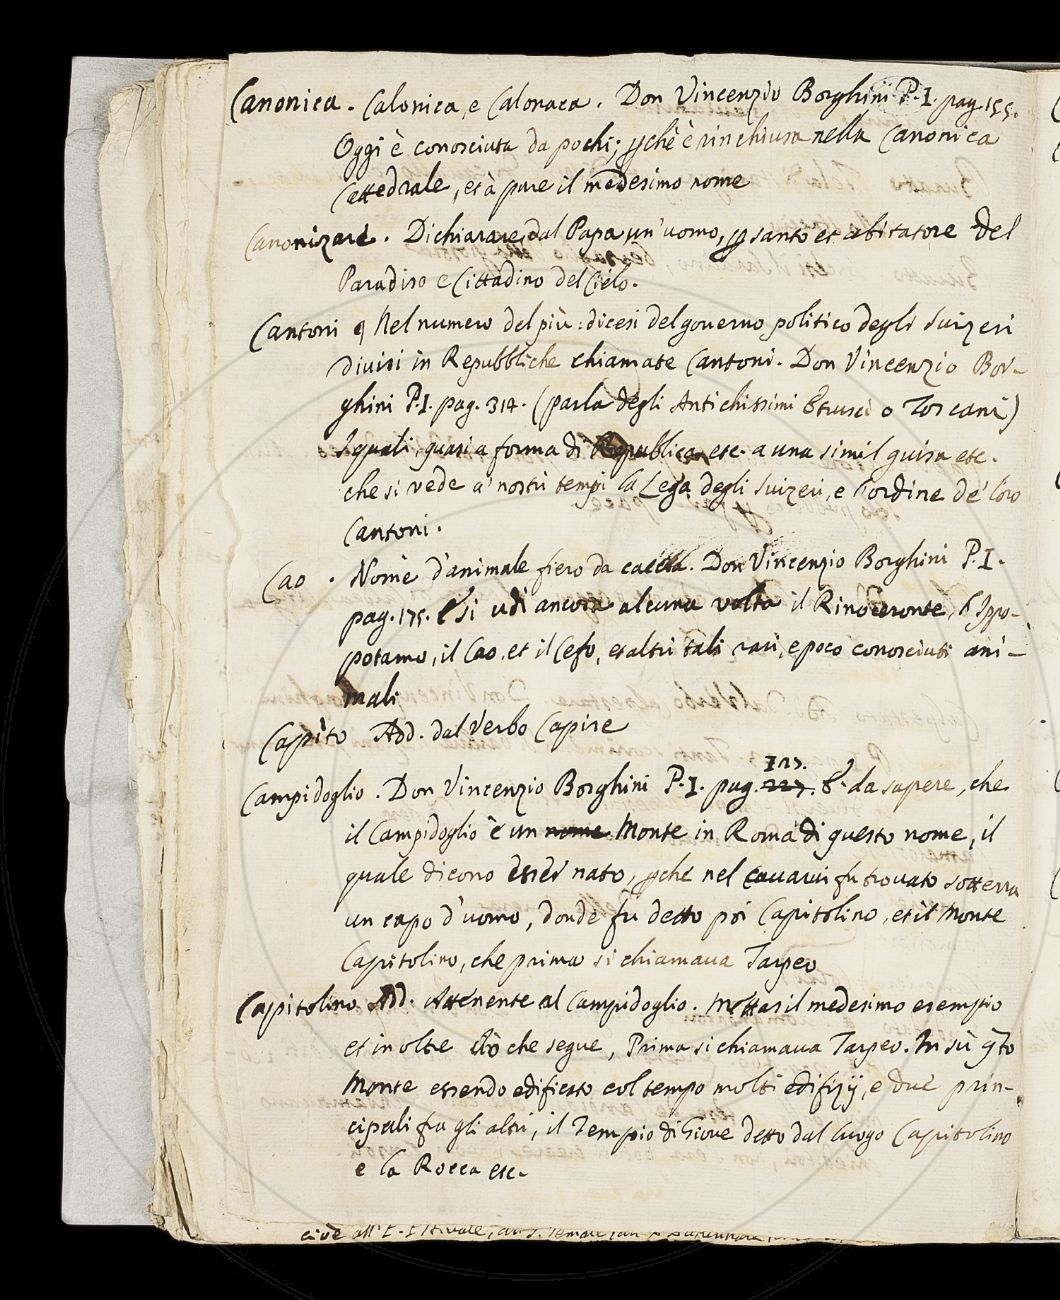 Canonica. Calonica, e Calonaca. Don Vincenzio Borghini P.I. pag. 155.
Oggi è conosciuta da pochi; pchè è rinchiusa nella Canonica
Cattedrale, et à pure il medesimo nome
Canonizare. Dichiarare dal Papa un'uomo, p santo et abitatore del
Paradiso e Cittadino del Cielo.
Cantoni Nel numero del più: dicesi del governo politico degli Suizeri
divisi in Repubbliche chiamate Cantoni. Don Vincenzio Bor-
ghini P.I. pag. 314. (parla degli Antichissimi Etrusci o Toscani)
I quali, quasi a forma di Republica etc. a una simil guisa etc.
che si vede a' nostri tempi la Lega degli Suizeri, e l'ordine de' loro
Cantoni.
Cao. Nome d'animale fiero da caccia. Don Vincenzio Borghini P.I.
pag. 175. E si udì ancora alcuna volta il Rinoceronte, l'Ippo-
potamo, il Cao, et il Cefo, et altri tali rari, e poco conosciuti ani-
mali
Capito Add. dal Verbo Capire
123.
Campidoglio. Don Vincenzio Borghini P.I. pag. 227. E. da sapere, che
il Campidoglio è un nome Monte in Roma di questo nome, il
quale dicono essersi nato, pchè nel cavarvi fu trovato sotterra
un capo d'uomo, donde fu detto poi Capitolino, et il Monte
Capitolino, che prima si chiamava Tarpeo
Capitolino. Add. Attenente al Campidoglio. Mettasi il medesimo esempio
et in oltre ciò che segue, Prima si chiamava Tarpeo. In sù qto
Monte essendo edificato col tempo molti edifizij, e due prin-
cipali fra gli altri, il Tempio di Giove detto dal luogo Capitolino
e la Rocca etc.
cioè all'